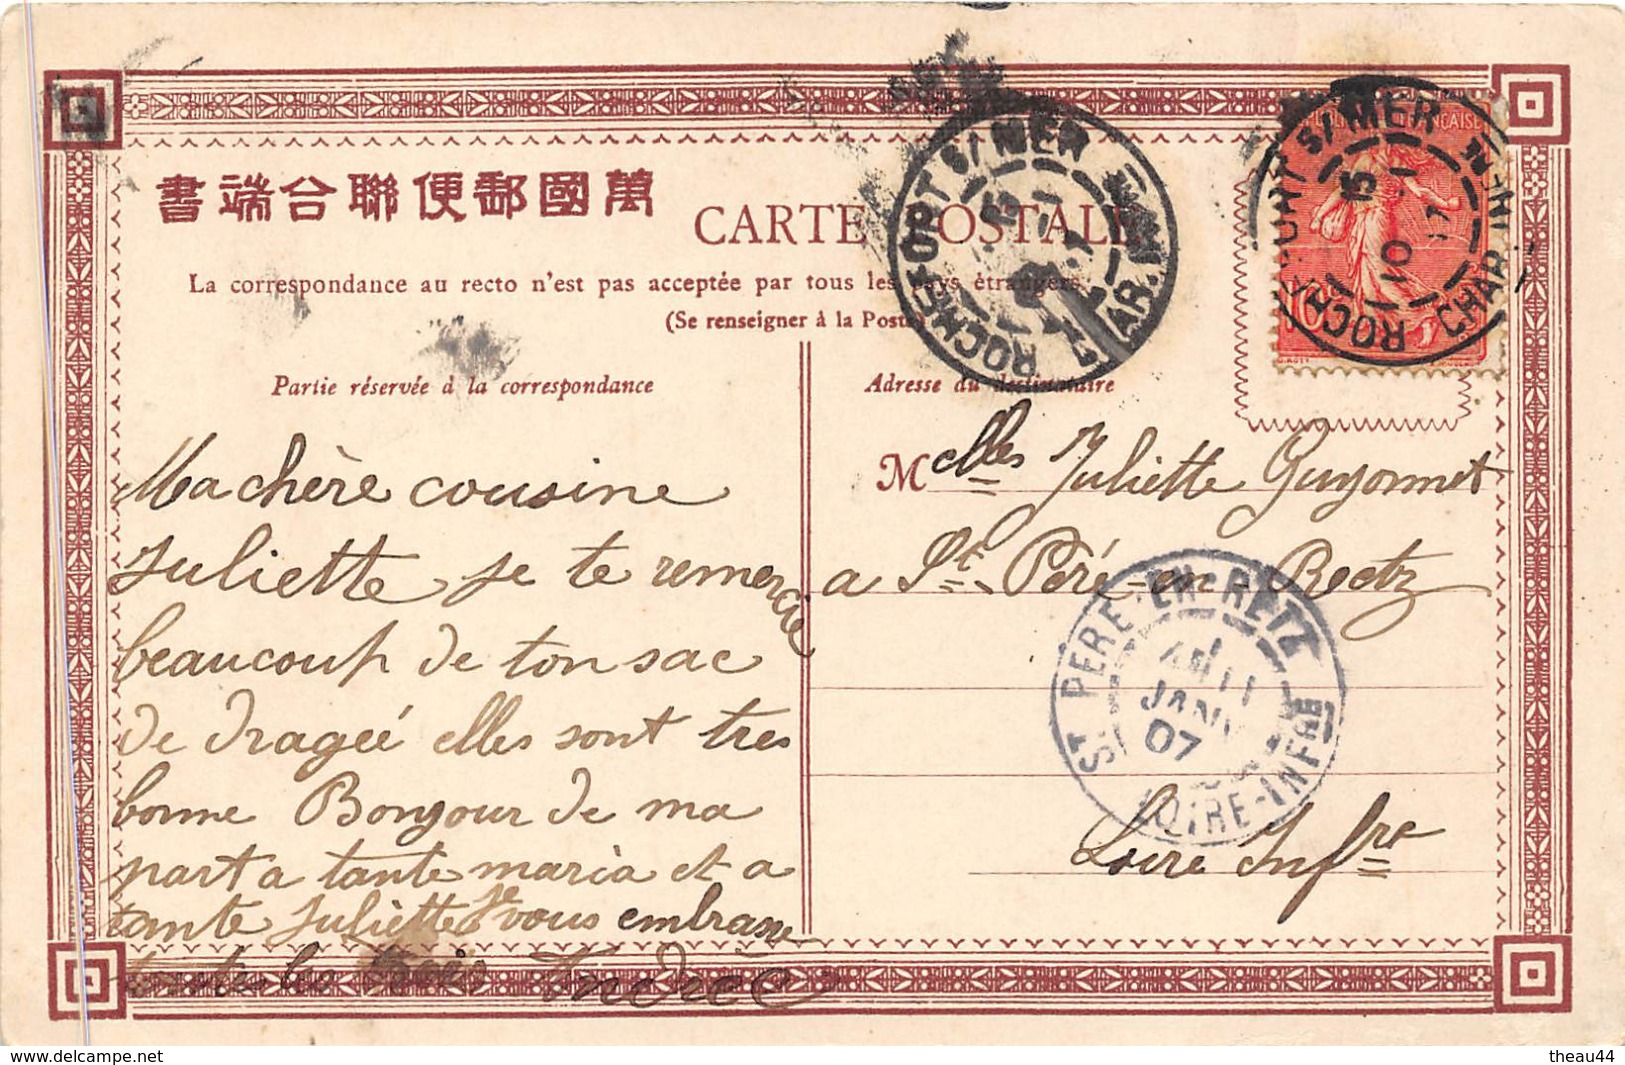 書端合聯便郵國萬
CARTE POSTALE
La correspondance au recto n'est pas acceptée par tous les pays étrangers
(Se renseigner à la Poste)
Partie réservée à la correspondance
Adresse du destinataire
Ma chère cousine
Juliette je te remercie
beaucoup de ton sac
de dragée elles sont tres
bonne Bonjour de ma
part a tante maria et a
tante Juliette je vous embrasse
toute les trois Andrée
Mcelles Juliette Guyonnet
a St. Péré-en-Reetz
Loire Infre
ROCHEFORT S/ MER
CHAR. INFRE
ROCHEFORT S/ MER
15 1
10
CHAR. INFRE
RÉPUBLIQUE FRANÇAISE
10
ST PÈRE-EN-RETZ
11
JANV
07
LOIRE-INFRE
www.delcampe.net
theau44